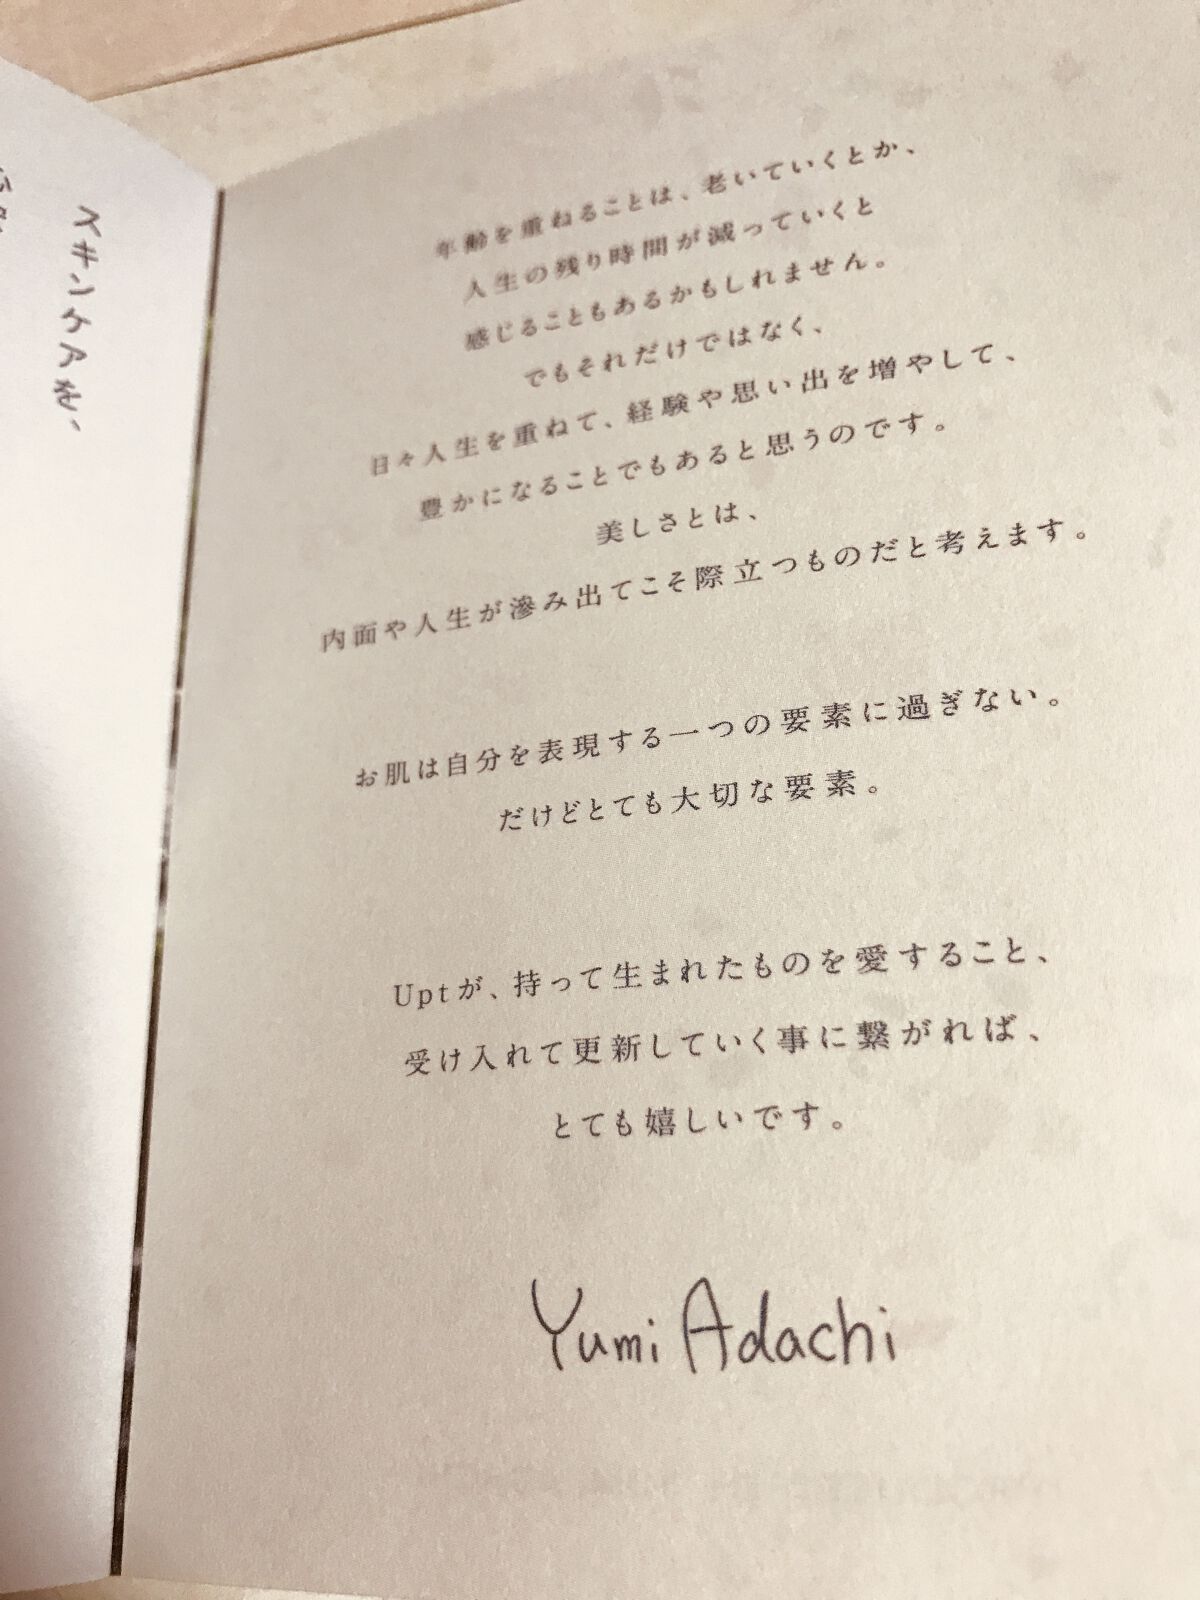 スキンケアを、
年齢を重ねることは、老いていくとか、
人生の残り時間が減っていくと
感じることもあるかもしれません。
でもそれだけではなく、
日々人生を重ねて、経験や思い出を増やして、
豊かになることでもあると思うのです。
美しさとは、
内面や人生が滲み出てこそ際立つものだと考えます。
お肌は自分を表現する一つの要素に過ぎない。
だけどとても大切な要素。
Uptが、持って生まれたものを愛すること、
受け入れて更新していく事に繋がれば、
とても嬉しいです。
Yumi Adachi